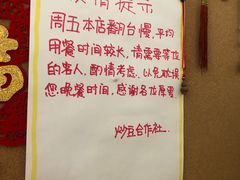 情提示
周五本店翻台慢,平均
用餐时间较长,请需要等位
的客人,酌情考虑.以免耽误
您晚餐时间,感谢各位原宽.
炒豆合作社.